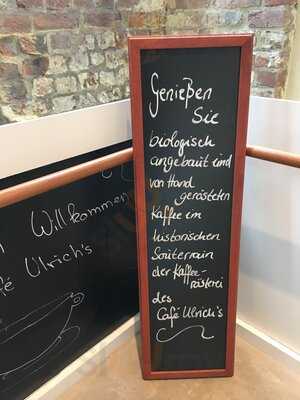 Genießen
Sie
biologisch
angebaut und
von Hand
gerösteten
Kaffee im
historischen
Souterrain
der Kaffee-
rösterei
des
Café Ulrich's
Willkommen
Ulrich's